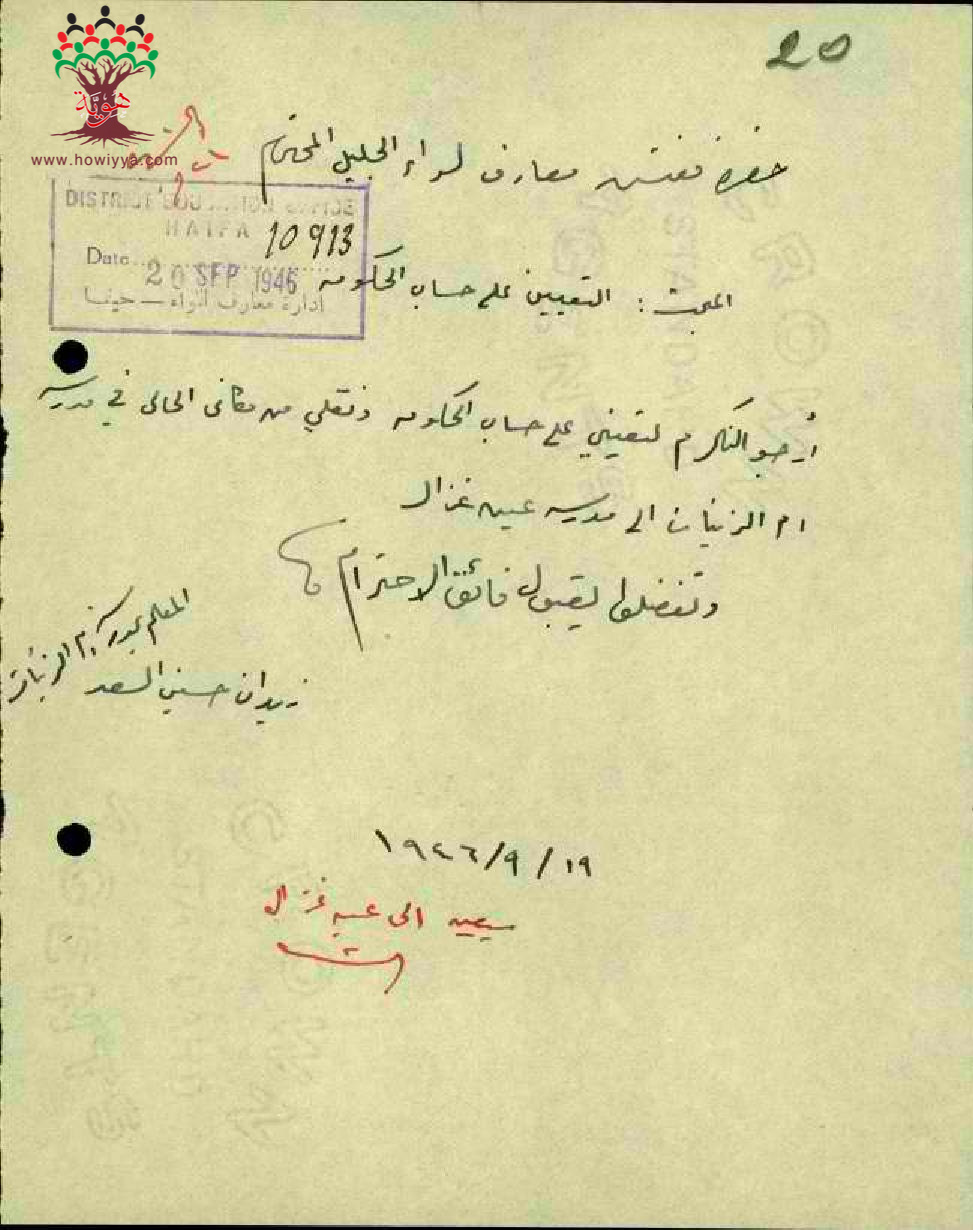 20
هوية
www.howiyya.com
حضرة مفتش معارف لواء الجليل المحترم
DISTRICT EDUCATION OFFICE
HAIFA
10913
Date 20 SEP 1946
ادارة معارف اللواء — حيفا
المبحث : التعيين على حساب الحكومه
أرجو التكرم لتعييني على حساب الحكومه ونقلي من مكاني الحالي في مدرسه
ام الزينات الى مدرسه عين غزال
وتفضلوا بقبول فائق الاحترام
المعلم بمدرسة ام الزينات
زيدان حسني السعد
١٩/٩/١٩٤٦
سيعين الى عين غزال